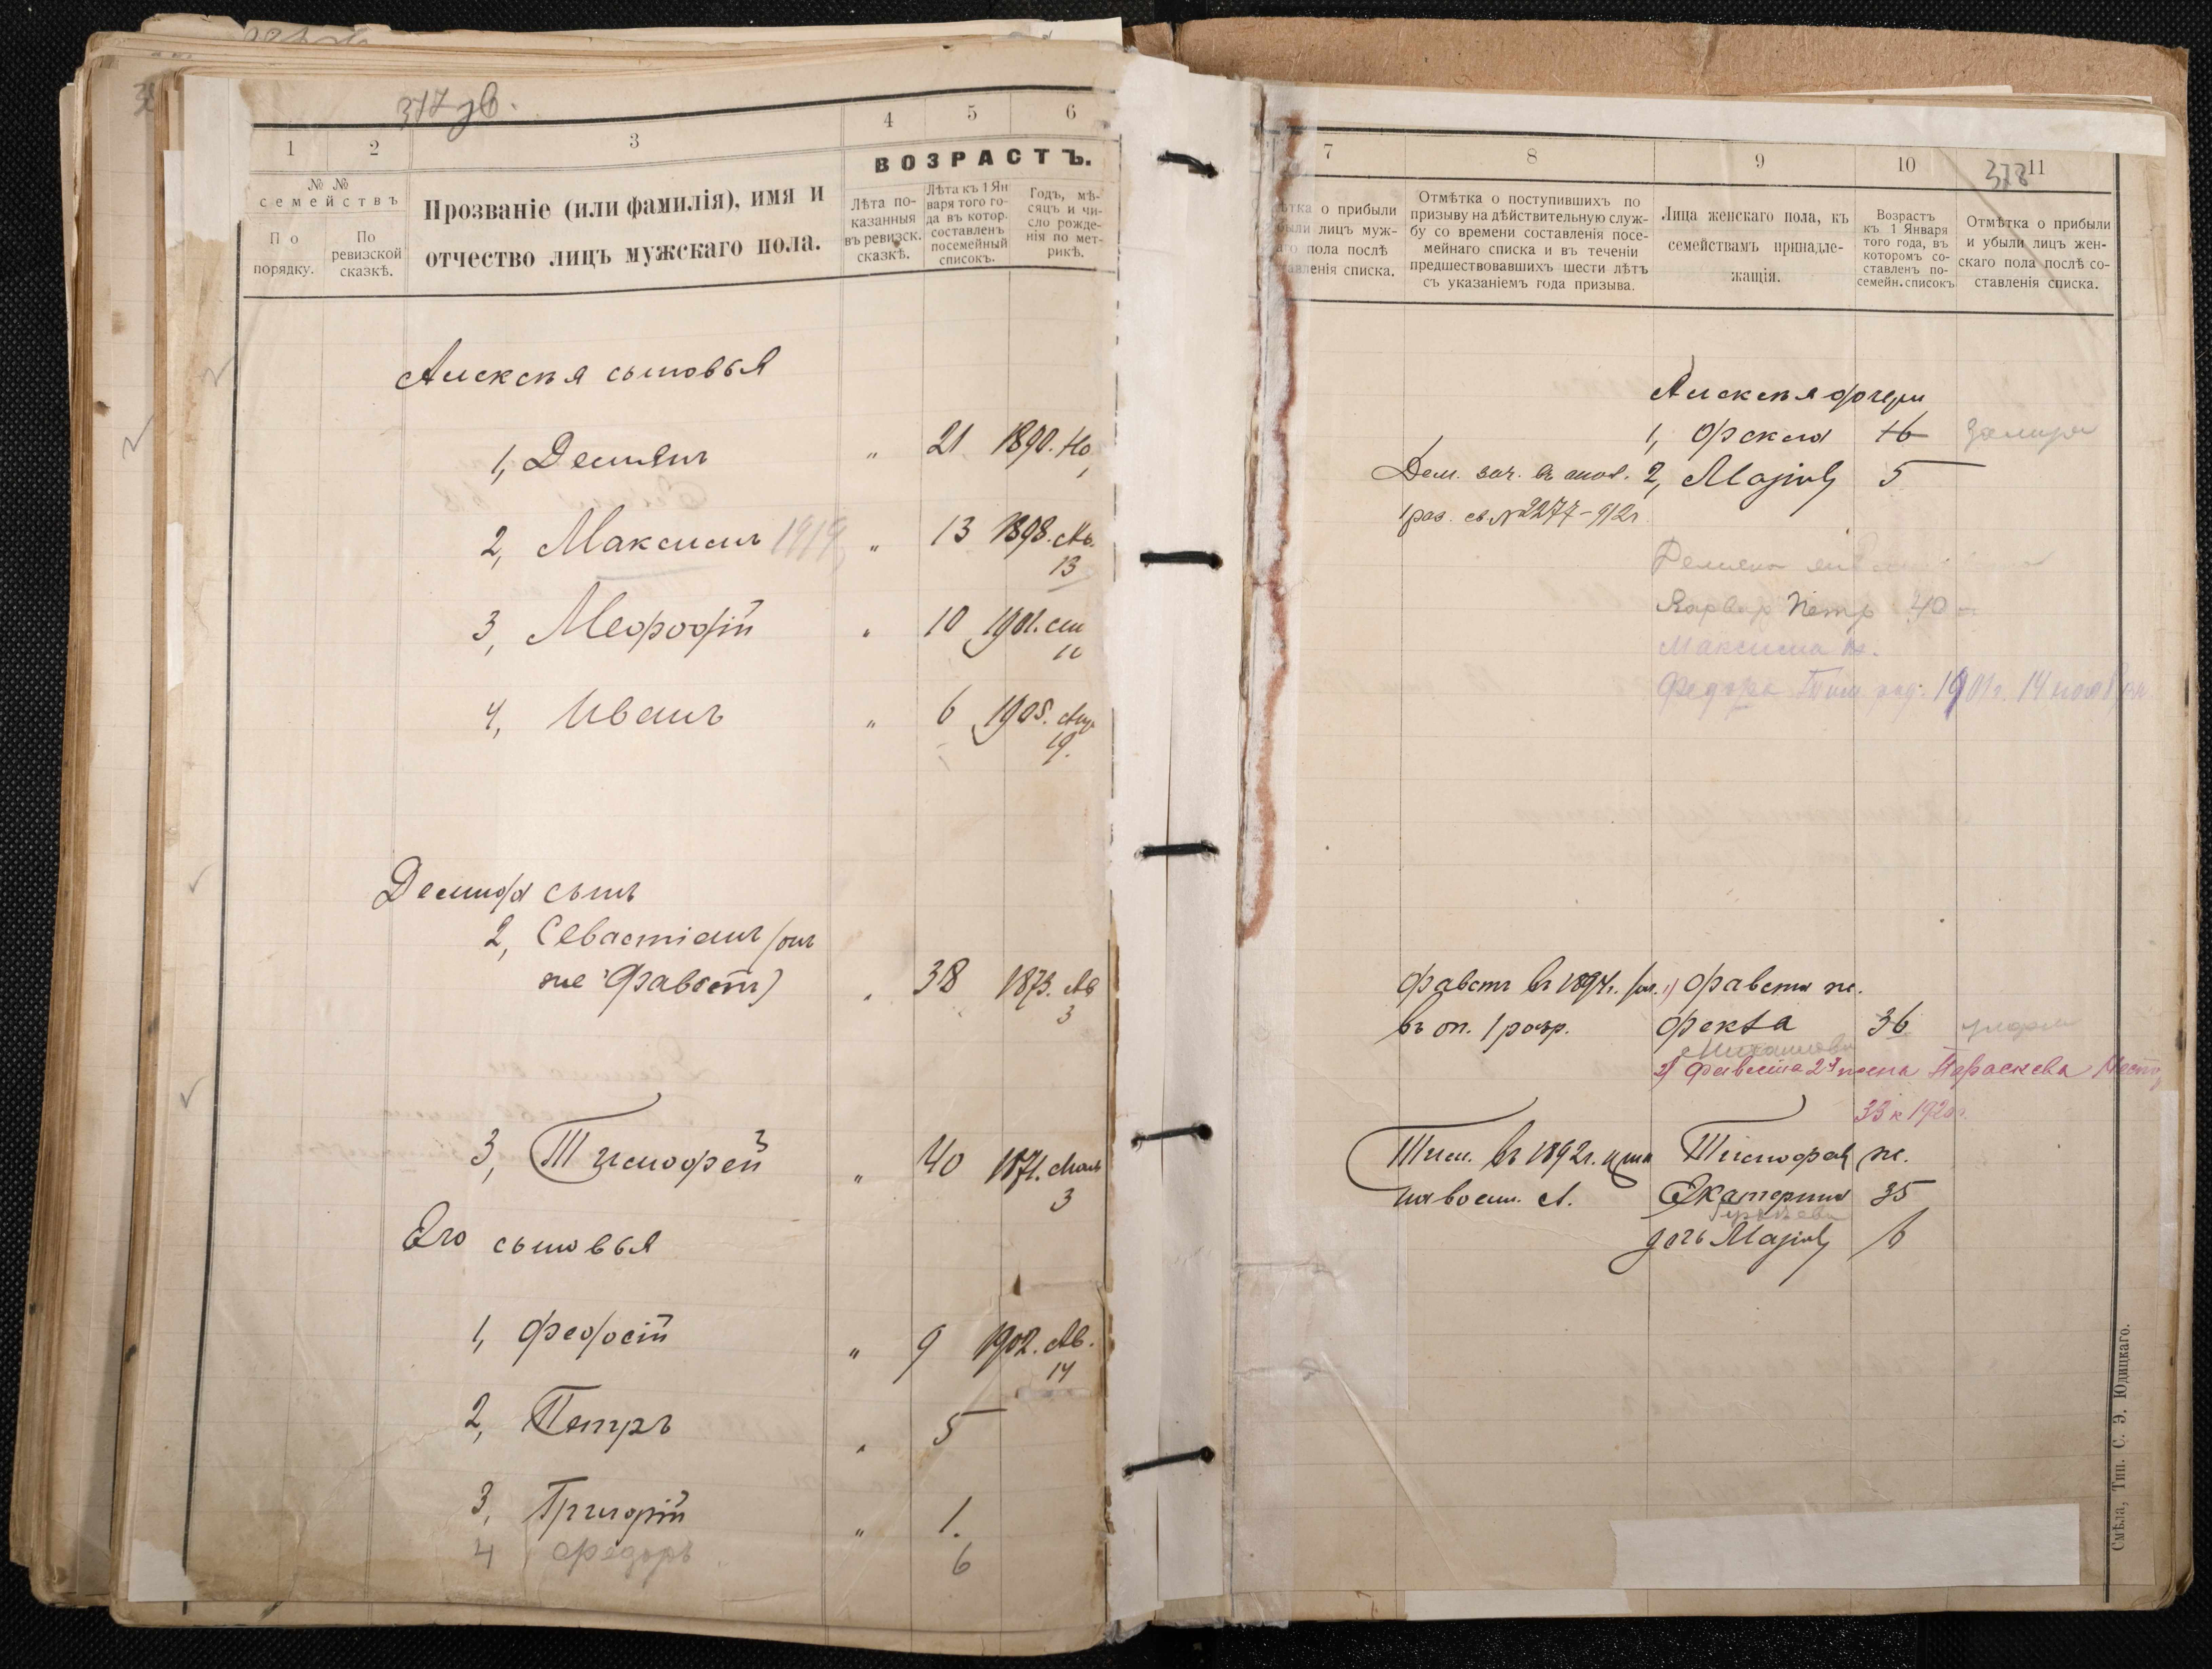 377 зв.
1
2
3
4
5
6
№ №
семействъ
По
порядку.
По
ревизской
сказкѣ.
Прозваніе (или фамилія), имя и
отчество лицъ мужскаго пола.
ВОЗРАСТЪ.
Лѣта по-
казанныя
въ ревизск.
сказкѣ.
Лѣта къ 1 Ян
варя того го-
да въ котор.
составленъ
посемейный
списокъ.
Годъ, мѣ-
сяцъ и чи-
сло рожде-
нія по мет-
рикѣ.
Алексѣя сыновья
1, Демьянъ " 21 1890. Но
1
2, Максимъ 1919 " 13 1898. Ав.
13
3, Меѳодій " 10 1901.
4, Иванъ " 6 1905. Апр
19.
Демида сынъ
2, Севастіанъ /онъ
же Фавстъ) " 38 1873. Ав
3
3, Тимофей " 40 1871.
3
Его сыновья
1, Феодосій " 9 1902. Ав.
14
2, Петръ " 5
3, Григорій " 1.
4 Федоръ 6
7
8
9
10
11
378
о прибыли
были лицъ муж-
пола послѣ
списка.
Отмѣтка о поступившихъ по
призыву на дѣйствительную служ-
бу со времени составленія посе-
мейнаго списка и въ теченіи
предшествовавшихъ шести лѣтъ
съ указаніемъ года призыва.
Лица женскаго пола, къ
семействамъ принадле-
жащія.
Возрастъ
къ 1 Января
того года, въ
которомъ со-
ставленъ по-
семейн. списокъ
Отмѣтка о прибыли
и убыли лицъ жен-
скаго пола послѣ со-
ставленія списка.
Алексѣя дочери
1, Фекла 16
Дем. зач. въ опол. 2, Марія 5
1 раз. св. № 2277-912 г.
Демьяна
Варвар Петр 40
Максима ж.
Федора Тим род. 1901 г. 14 ноября
Фавстъ въ 1894 г. 1) Фавста ж.
въ оп. 1 разр. Фекла 36
Михайлова
2) Фавста 2я жена Параскева
33 к 1920 г.
Тим. въ 1892 г. Тимофея ж.
Екатерина 35
дочь Марія 6
Смѣла, Тип. С. Э. Юдицкаго.